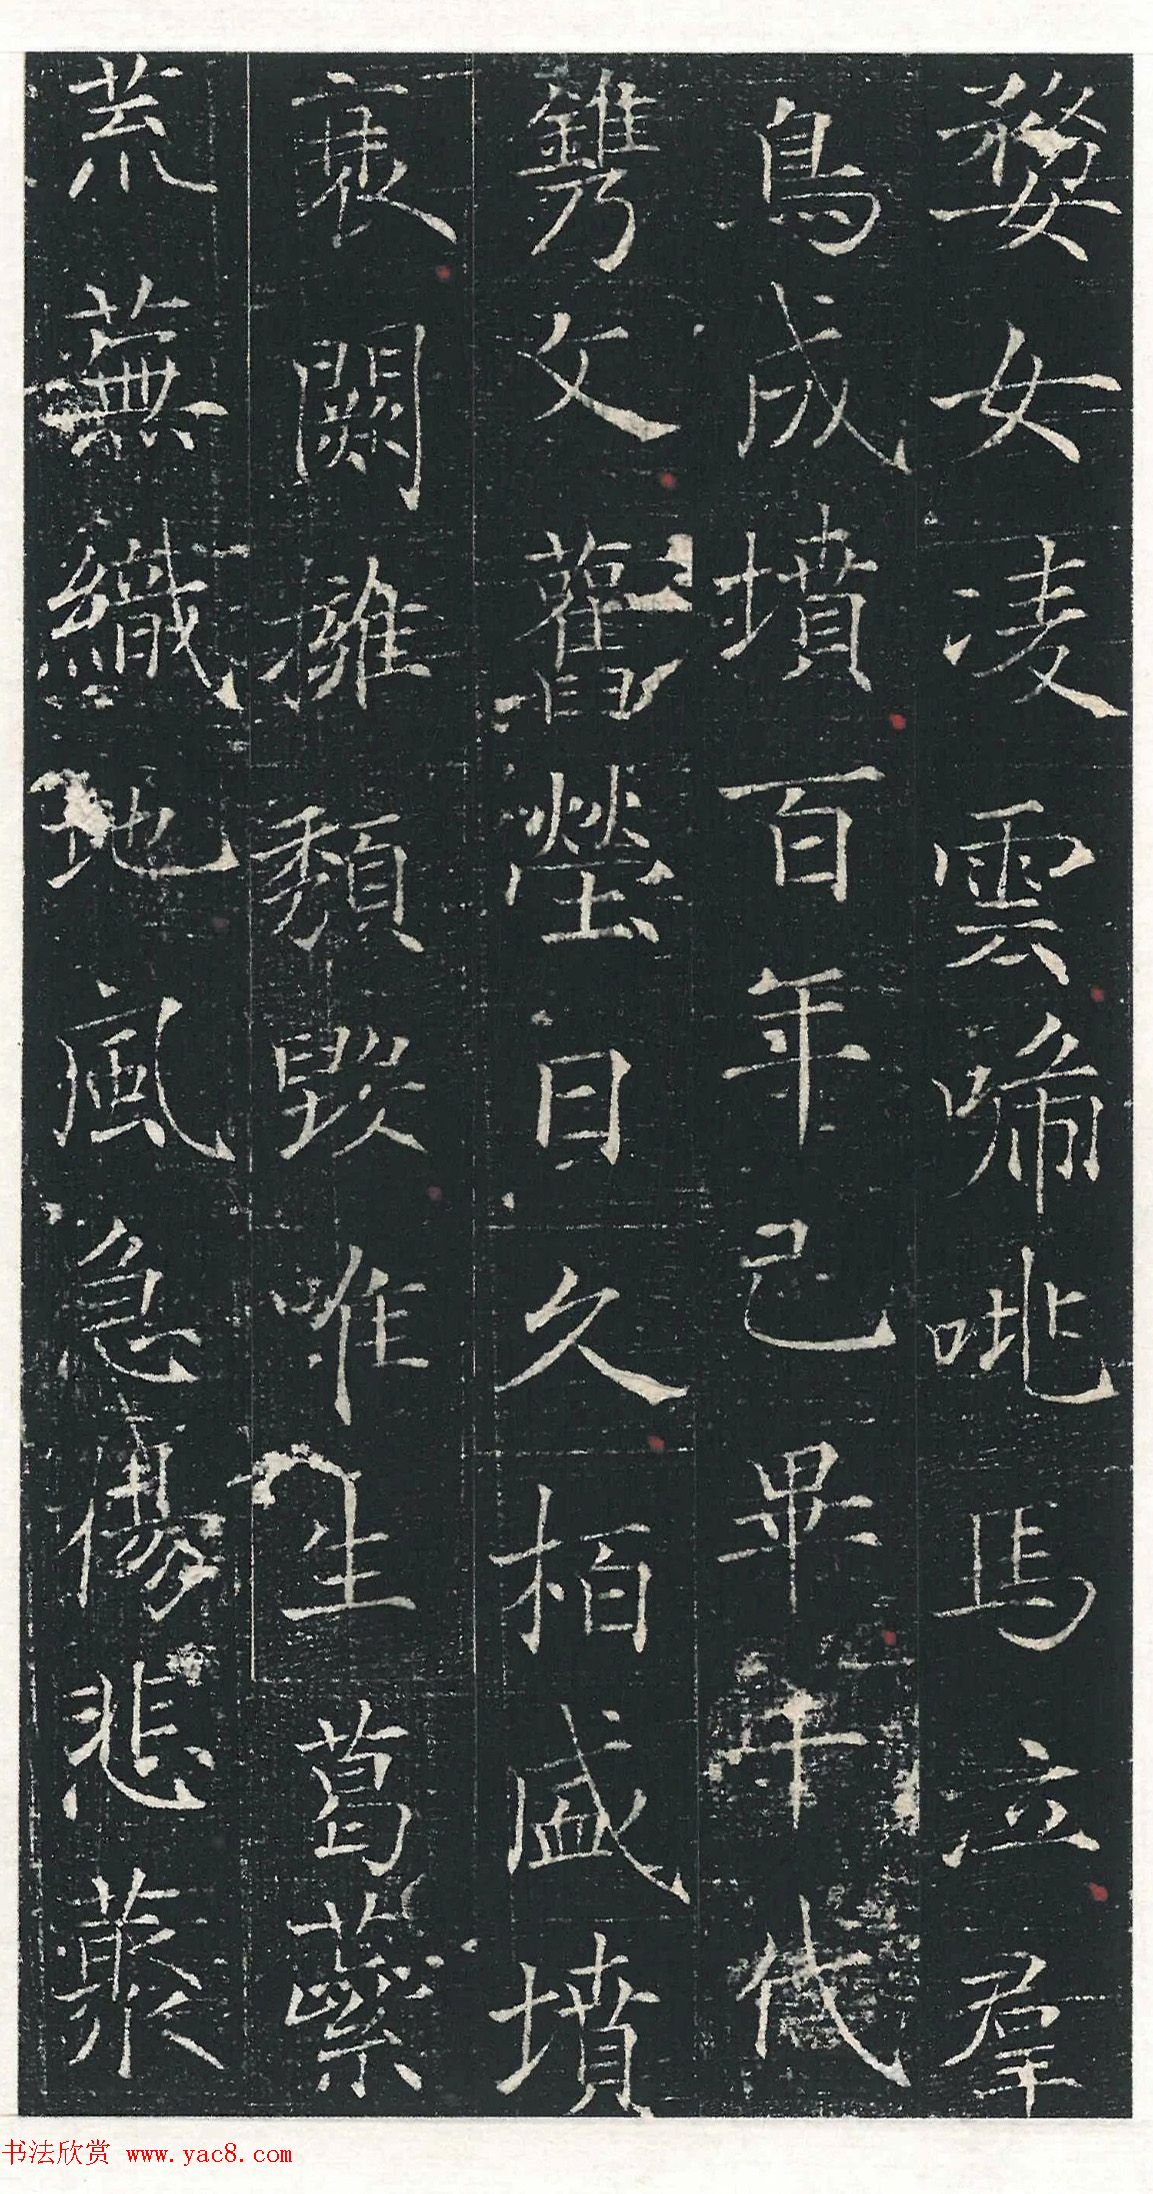 婺女凌雲啼咷馬立羣
鳥成墳百年已畢千代
鐫文舊塋日久栢盛墳
衰闕摧頽毀唯生葛藟
荒蕪織地風急傷悲叢
书法欣赏 www.yac8.com